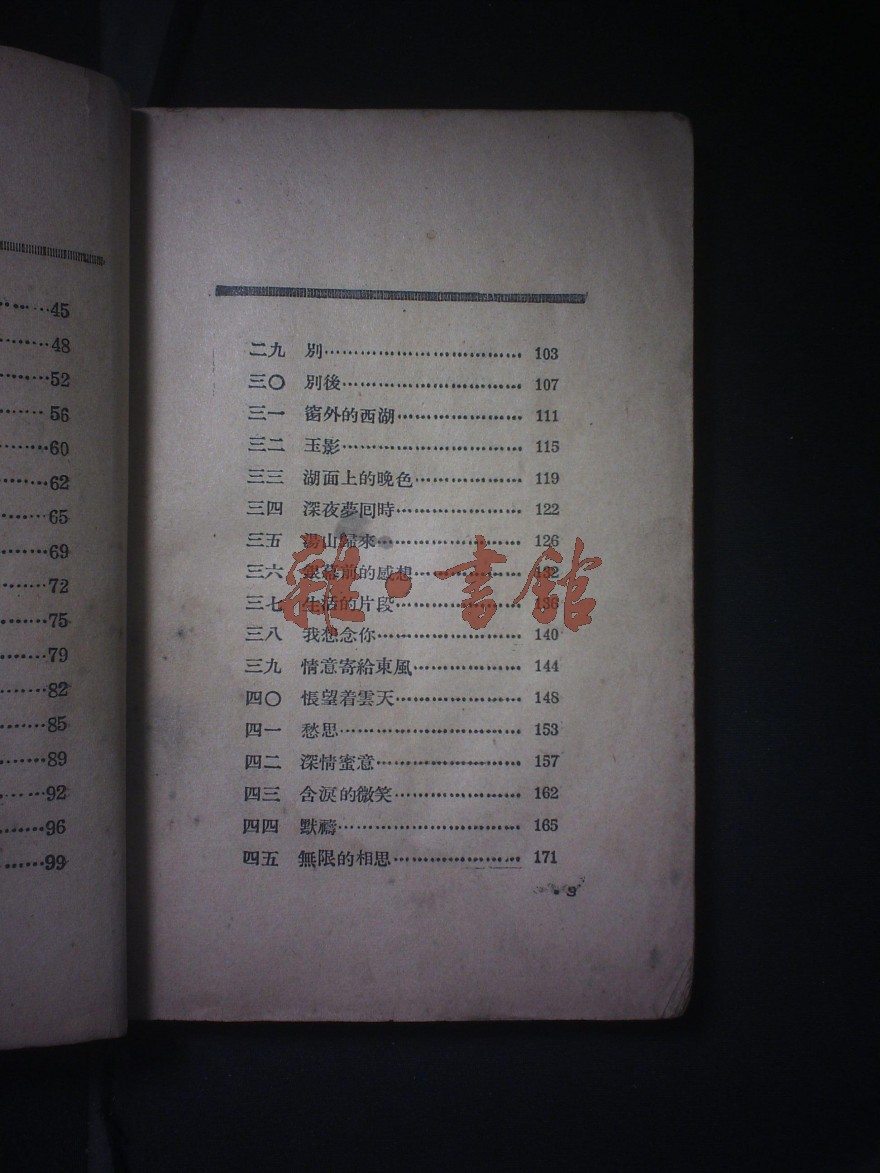 45
48
52
56
60
62
65
69
72
75
79
82
85
89
92
96
99
二九 別…………………………… 103
三〇 別後………………………… 107
三一 窗外的西湖………………… 111
三二 玉影………………………… 115
三三 湖面上的晚色……………… 119
三四 深夜夢回時………………… 122
三五 湯山歸來…………………… 126
三六 銀幕前的感想……………… 132
三七 生活的片段………………… 136
三八 我想念你…………………… 140
三九 情意寄給東風……………… 144
四〇 悵望着雲天………………… 148
四一 愁思………………………… 153
四二 深情蜜意…………………… 157
四三 含淚的微笑………………… 162
四四 默禱………………………… 165
四五 無限的相思………………… 171
3
雜·書館